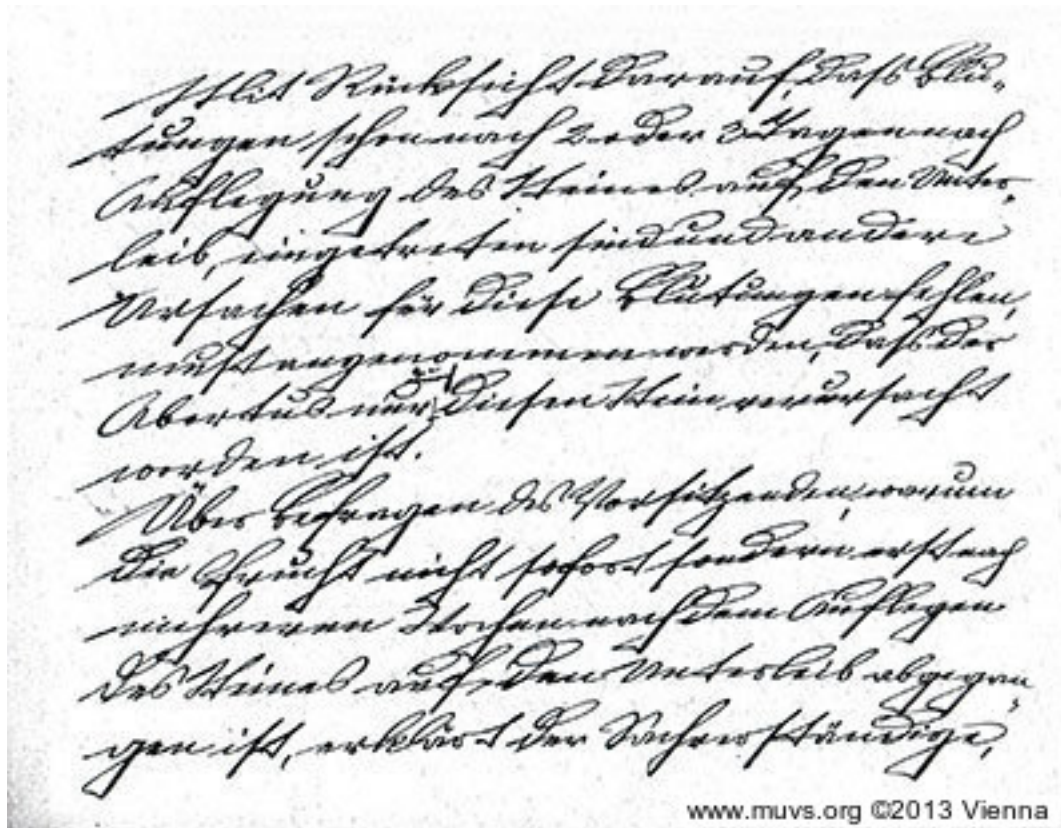 Mit Rücksicht darauf, dass Blu-
tungen schon nach 2 oder 3 Tagen nach
Auflegung des Steines auf den Unter-
leib, eingetreten sind und andere
Ursachen für diese Blutungen fehlen,
muss angenommen werden, dass der
Abortus nur diesen Stein verursacht
worden ist.
Über Befragen des Vorsitzenden, warum
die Frucht nicht sofort sondern erst nach
mehreren Wochen nach dem Auflegen
des Steines auf den Unterleib abgegan-
gen ist, erklärt der Sachverständige,
www.muvs.org ©2013 Vienna